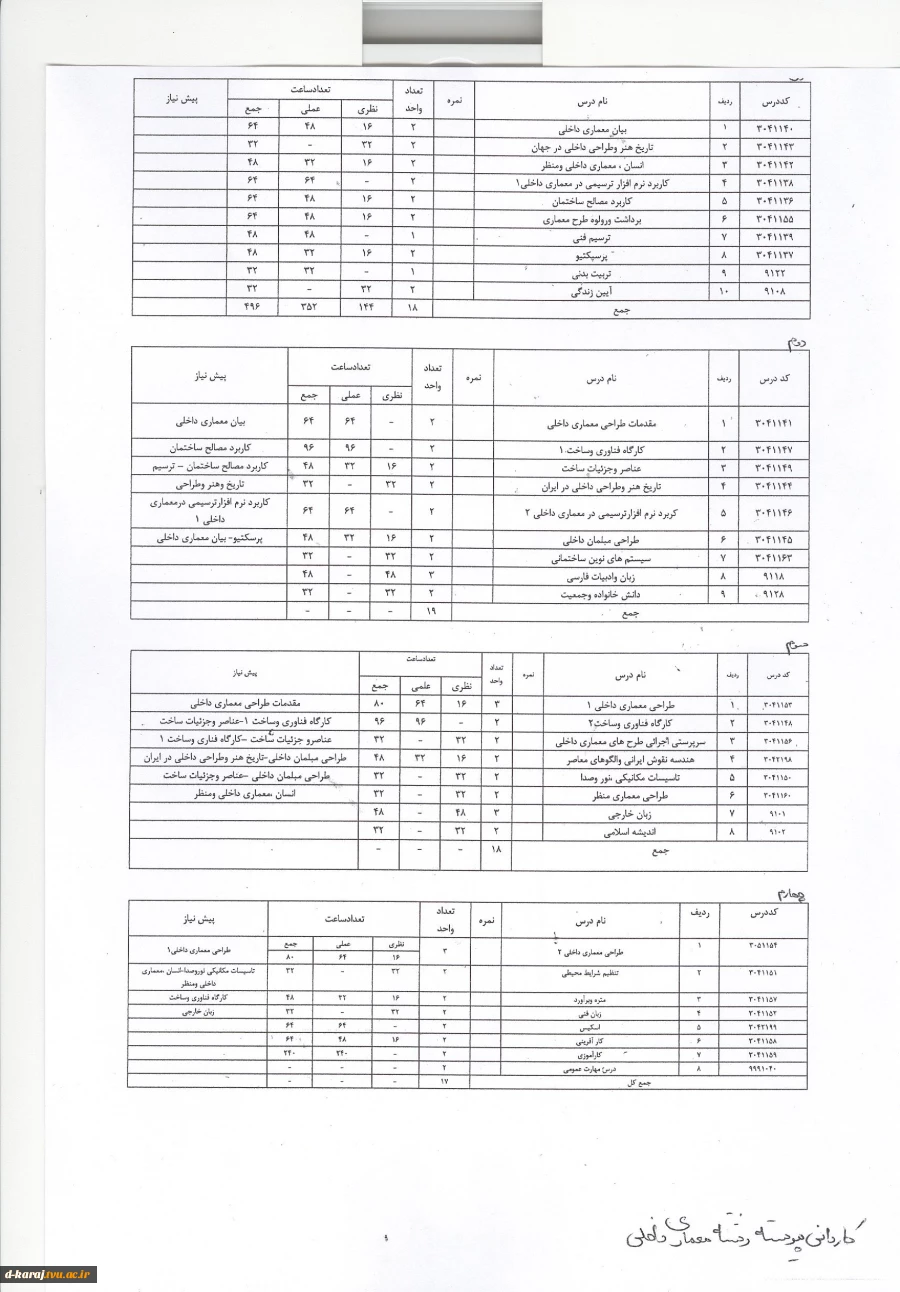 کددرس ردیف نام درس نمره تعداد واحد تعدادساعت پیش نیاز
نظری عملی جمع
۳۰۴۱۱۴۰ ۱ بیان معماری داخلی ۲ ۱۶ ۴۸ ۶۴
۳۰۴۱۱۴۳ ۲ تاریخ هنر وطراحی داخلی در جهان ۲ ۳۲ - ۳۲
۳۰۴۱۱۴۲ ۳ انسان ، معماری داخلی ومنظر ۲ ۱۶ ۳۲ ۴۸
۳۰۴۱۱۳۸ ۴ کاربرد نرم افزار ترسیمی در معماری داخلی۱ ۲ - ۶۴ ۶۴
۳۰۴۱۱۳۶ ۵ کاربرد مصالح ساختمان ۲ ۱۶ ۴۸ ۶۴
۳۰۴۱۱۵۵ ۶ برداشت ورولوه طرح معماری ۲ ۱۶ ۴۸ ۶۴
۳۰۴۱۱۳۹ ۷ ترسیم فنی ۱ - ۴۸ ۴۸
۳۰۴۱۱۳۷ ۸ پرسپکتیو ۲ ۱۶ ۳۲ ۴۸
۹۱۲۲ ۹ تربیت بدنی ۱ - ۳۲ ۳۲
۹۱۰۸ ۱۰ آیین زندگی ۲ ۳۲ - ۳۲
جمع ۱۸ ۱۴۴ ۳۵۲ ۴۹۶
دوم
کد درس ردیف نام درس نمره تعداد واحد تعدادساعت پیش نیاز
نظری عملی جمع
۳۰۴۱۱۴۱ ۱ مقدمات طراحی معماری داخلی ۲ - ۶۴ ۶۴ بیان معماری داخلی
۳۰۴۱۱۴۷ ۲ کارگاه فناوری وساخت ۱ ۲ - ۹۶ ۹۶ کاربرد مصالح ساختمان
۳۰۴۱۱۴۹ ۳ عناصر وجزئیات ساخت ۲ ۱۶ ۳۲ ۴۸ کاربرد مصالح ساختمان – ترسیم
۳۰۴۱۱۴۴ ۴ تاریخ هنر وطراحی داخلی در ایران ۲ ۳۲ - ۳۲ تاریخ وهنر وطراحی
۳۰۴۱۱۴۶ ۵ کربرد نرم افزارترسیمی در معماری داخلی ۲ ۲ - ۶۴ ۶۴ کاربرد نرم افزارترسیمی درمعماری داخلی ۱
۳۰۴۱۱۴۵ ۶ طراحی مبلمان داخلی ۲ ۱۶ ۳۲ ۴۸ پرسکتیو- بیان معماری داخلی
۳۰۴۱۱۶۳ ۷ سیستم های نوین ساختمانی ۲ ۳۲ - ۳۲
۹۱۱۸ ۸ زبان وادبیات فارسی ۳ ۴۸ - ۴۸
۹۱۲۸ ۹ دانش خانواده وجمعیت ۲ ۳۲ - ۳۲
جمع ۱۹ - - -
سوم
کد درس ردیف نام درس نمره تعداد واحد تعدادساعت پیش نیاز
نظری علمی جمع
۳۰۴۱۱۵۳ ۱ طراحی معماری داخلی ۱ ۳ ۱۶ ۶۴ ۸۰ مقدمات طراحی معماری داخلی
۳۰۴۱۱۴۸ ۲ کارگاه فناوری وساخت۲ ۲ - ۹۶ ۹۶ کارگاه فناوری وساخت ۱-عناصر وجزئیات ساخت
۳۰۴۱۱۵۶ ۳ سرپرستی اجرائی طرح های معماری داخلی ۲ ۳۲ - ۳۲ عناصرو جزئیات ساخت –کارگاه فناری وساخت ۱
۳۰۴۲۱۹۸ ۴ هندسه نقوش ایرانی والگوهای معاصر ۲ ۱۶ ۳۲ ۴۸ طراحی مبلمان داخلی-تاریخ هنر وطراحی داخلی در ایران
۳۰۴۱۱۵۰ ۵ تاسیسات مکانیکی ،نور وصدا ۲ ۳۲ - ۳۲ طراحی مبلمان داخلی –عناصر وجزئیات ساخت
۳۰۴۱۱۶۰ ۶ طراحی معماری منظر ۲ ۳۲ - ۳۲ انسان ،معماری داخلی ومنظر
۹۱۰۱ ۷ زبان خارجی ۳ ۴۸ - ۴۸
۹۱۰۲ ۸ اندیشه اسلامی ۲ ۳۲ - ۳۲
جمع ۱۸ - - -
چهارم
کددرس ردیف نام درس نمره تعداد واحد تعدادساعت پیش نیاز
نظری عملی جمع
۳۰۵۱۱۵۴ ۱ طراحی معماری داخلی ۲ ۳ ۱۶ ۶۴ ۸۰ طراحی معماری داخلی۱
۳۰۴۱۱۵۱ ۲ تنظیم شرایط محیطی ۲ ۳۲ - ۳۲ تاسیسات مکانیکی نوروصدا-انسان ،معماری داخلی ومنظر
۳۰۴۱۱۵۷ ۳ متره وبرآورد ۲ ۱۶ ۳۲ ۴۸ کارگاه فناوری وساخت
۳۰۴۱۱۵۲ ۴ زبان فنی ۲ ۳۲ - ۳۲ زبان خارجی
۳۰۴۲۱۹۹ ۵ اسکیس ۲ - ۶۴ ۶۴
۳۰۴۱۱۵۸ ۶ کار آفرینی ۲ ۱۶ ۴۸ ۶۴
۳۰۴۱۱۵۹ ۷ کارآموزی ۲ - ۲۴۰ ۲۴۰
۹۹۹۱۰۴۰ ۸ درس مهارت عمومی ۲ - - -
جمع کل ۱۷ - - -
کاردانی پیوسته رشته معماری داخلی
d-karaj.tvu.ac.ir